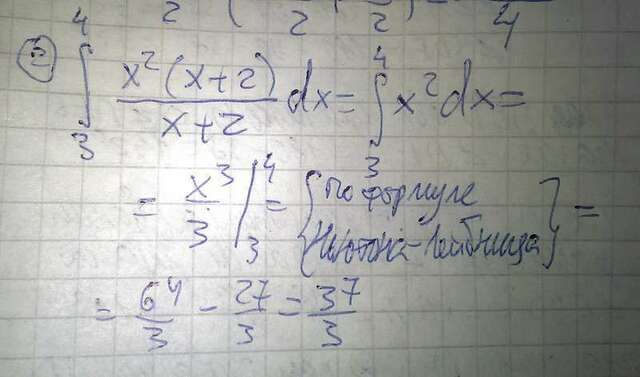 2 2 2 4
② ∫₃⁴ x²(x+2)/(x+2) dx = ∫₃⁴ x² dx =
= x³/3 |₃⁴ = {по формуле
Ньютона-Лейбница} =
= 64/3 - 27/3 = 37/3